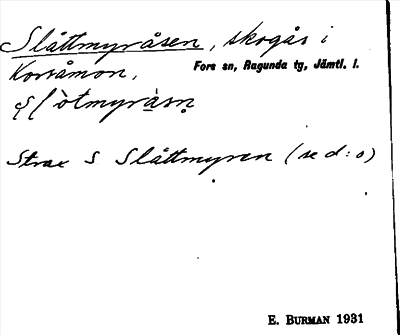 Slåttmyråsen, skogås i
Korsåmon,
Fors sn, Ragunda tg, Jämtl. l.
Strax S Slåttmyren (se d:o)
E. BURMAN 1931